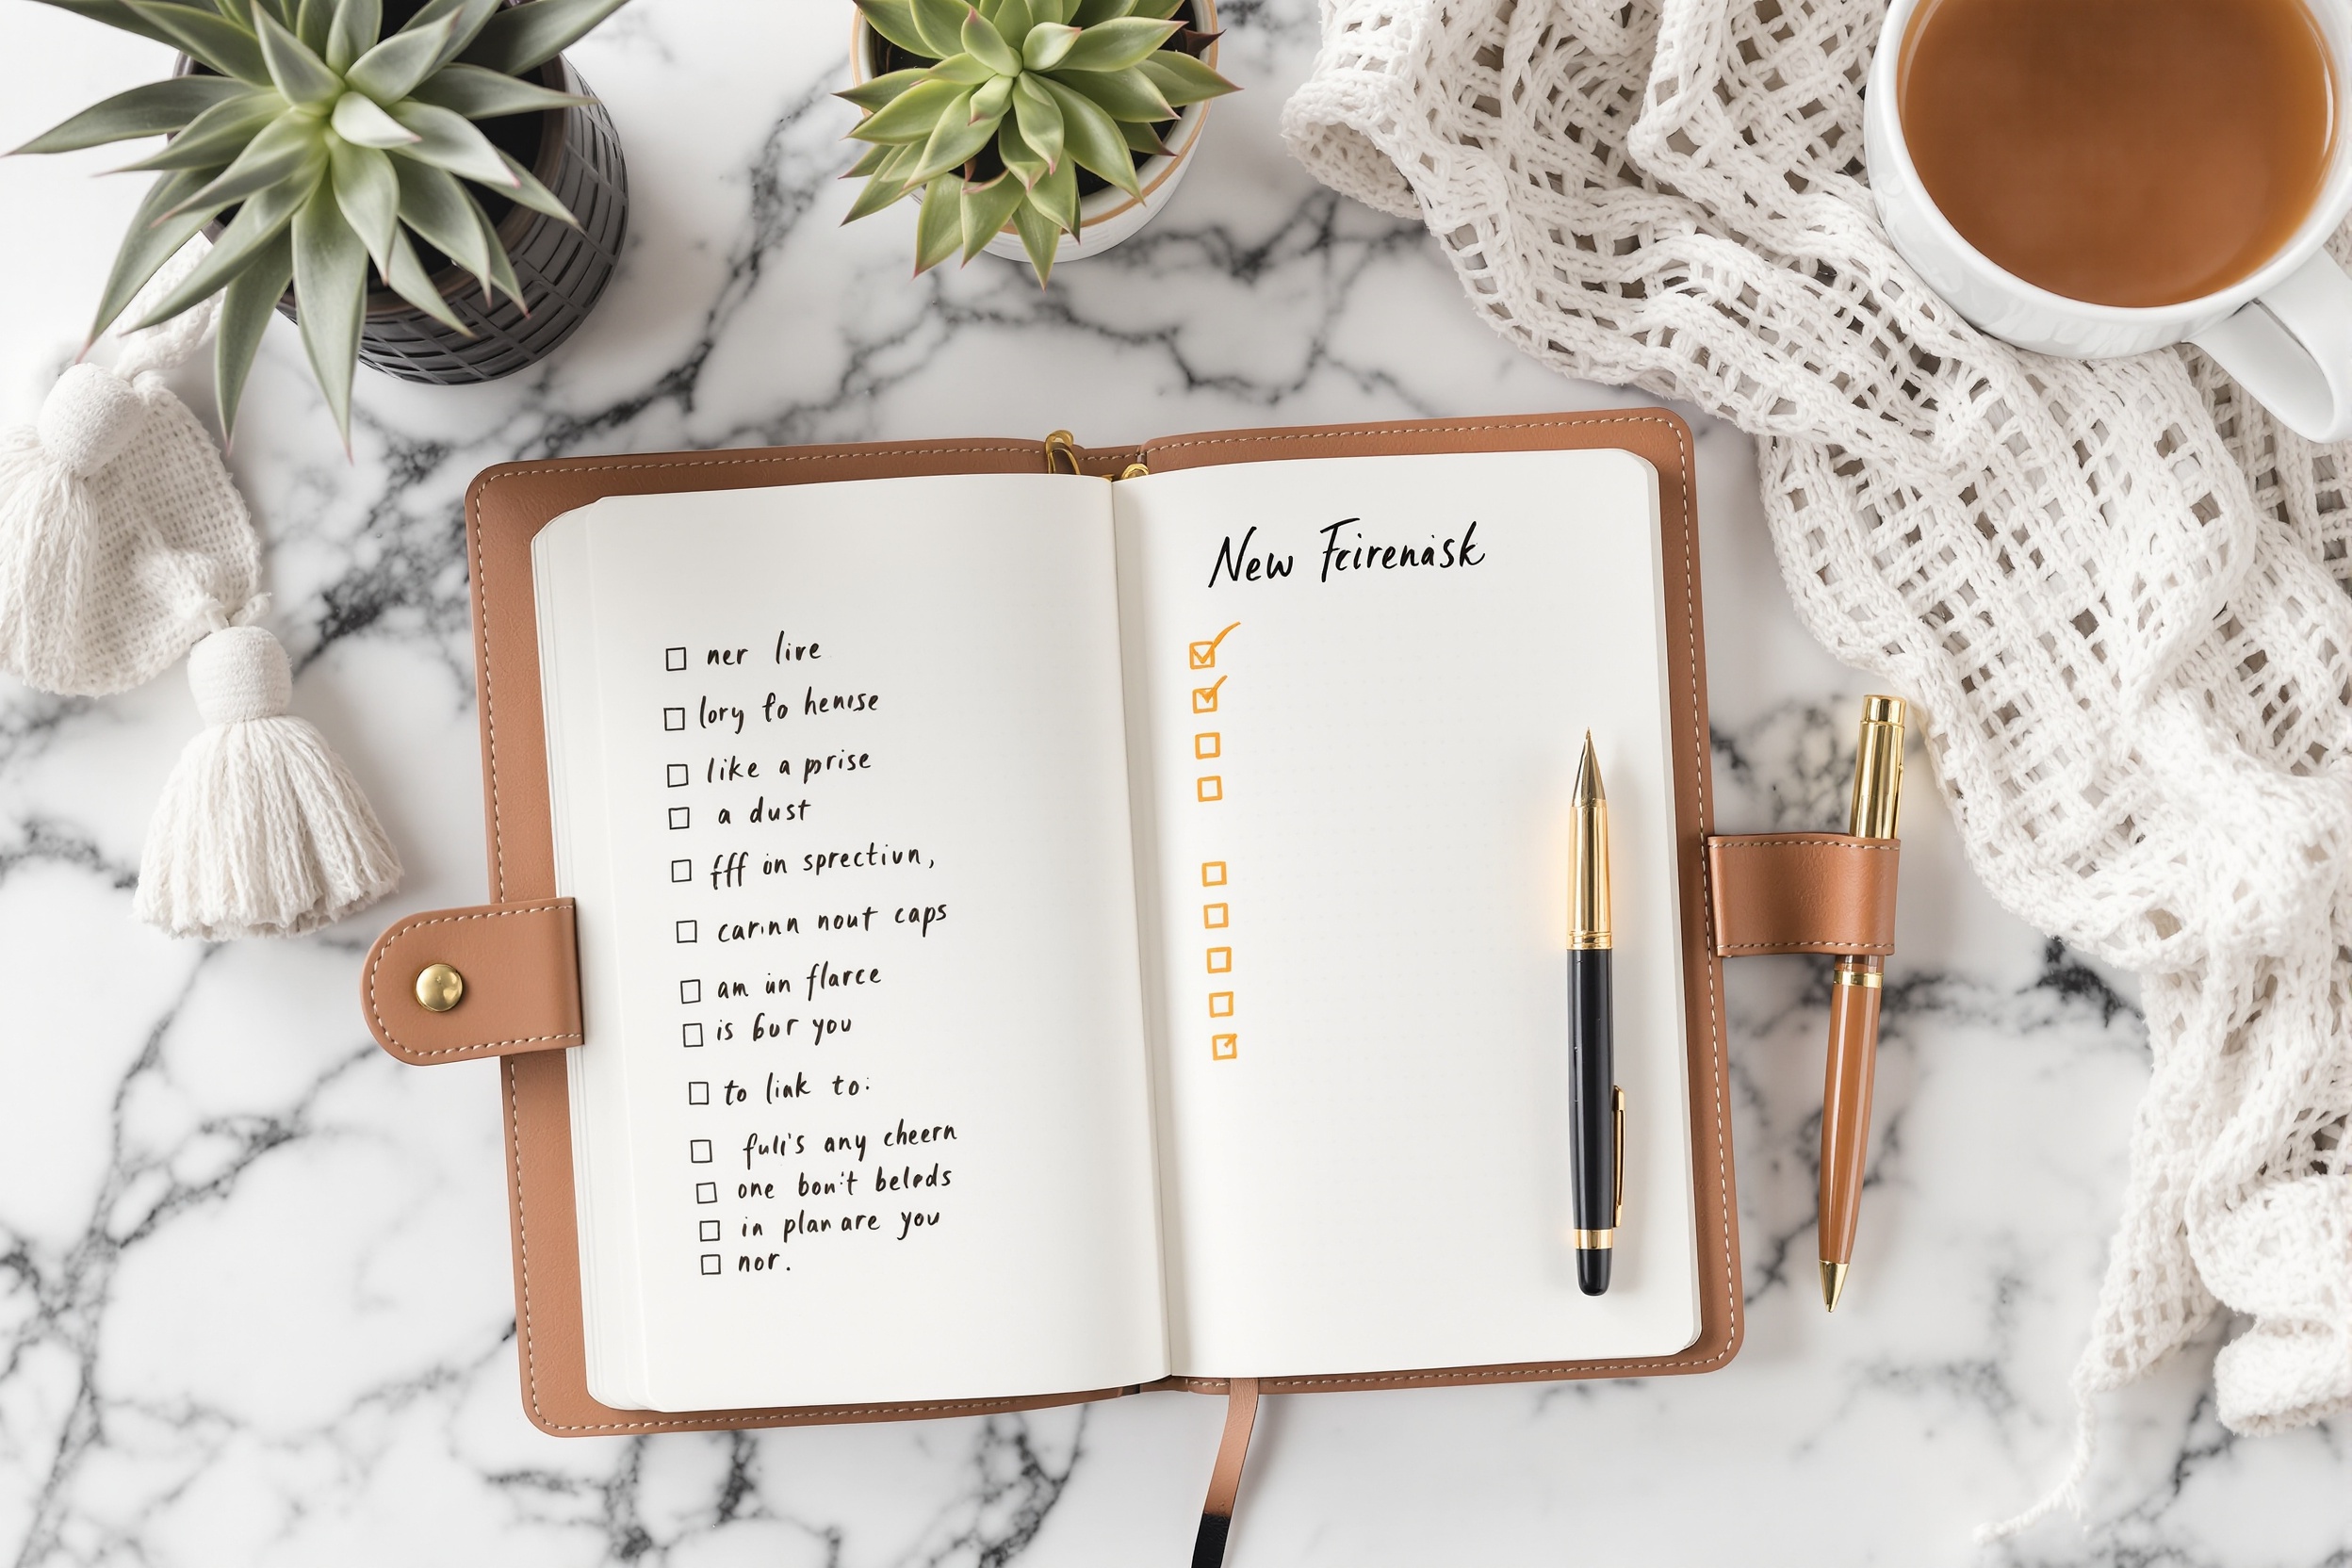 ner live
lory to henise
like a prise
a dust
fff in sprectiun,
carinn nout caps
am in flarce
is bur you
to link to:
fuli's any cheern
one bon't beleds
in plan are you
nor.
New Fcirenisk